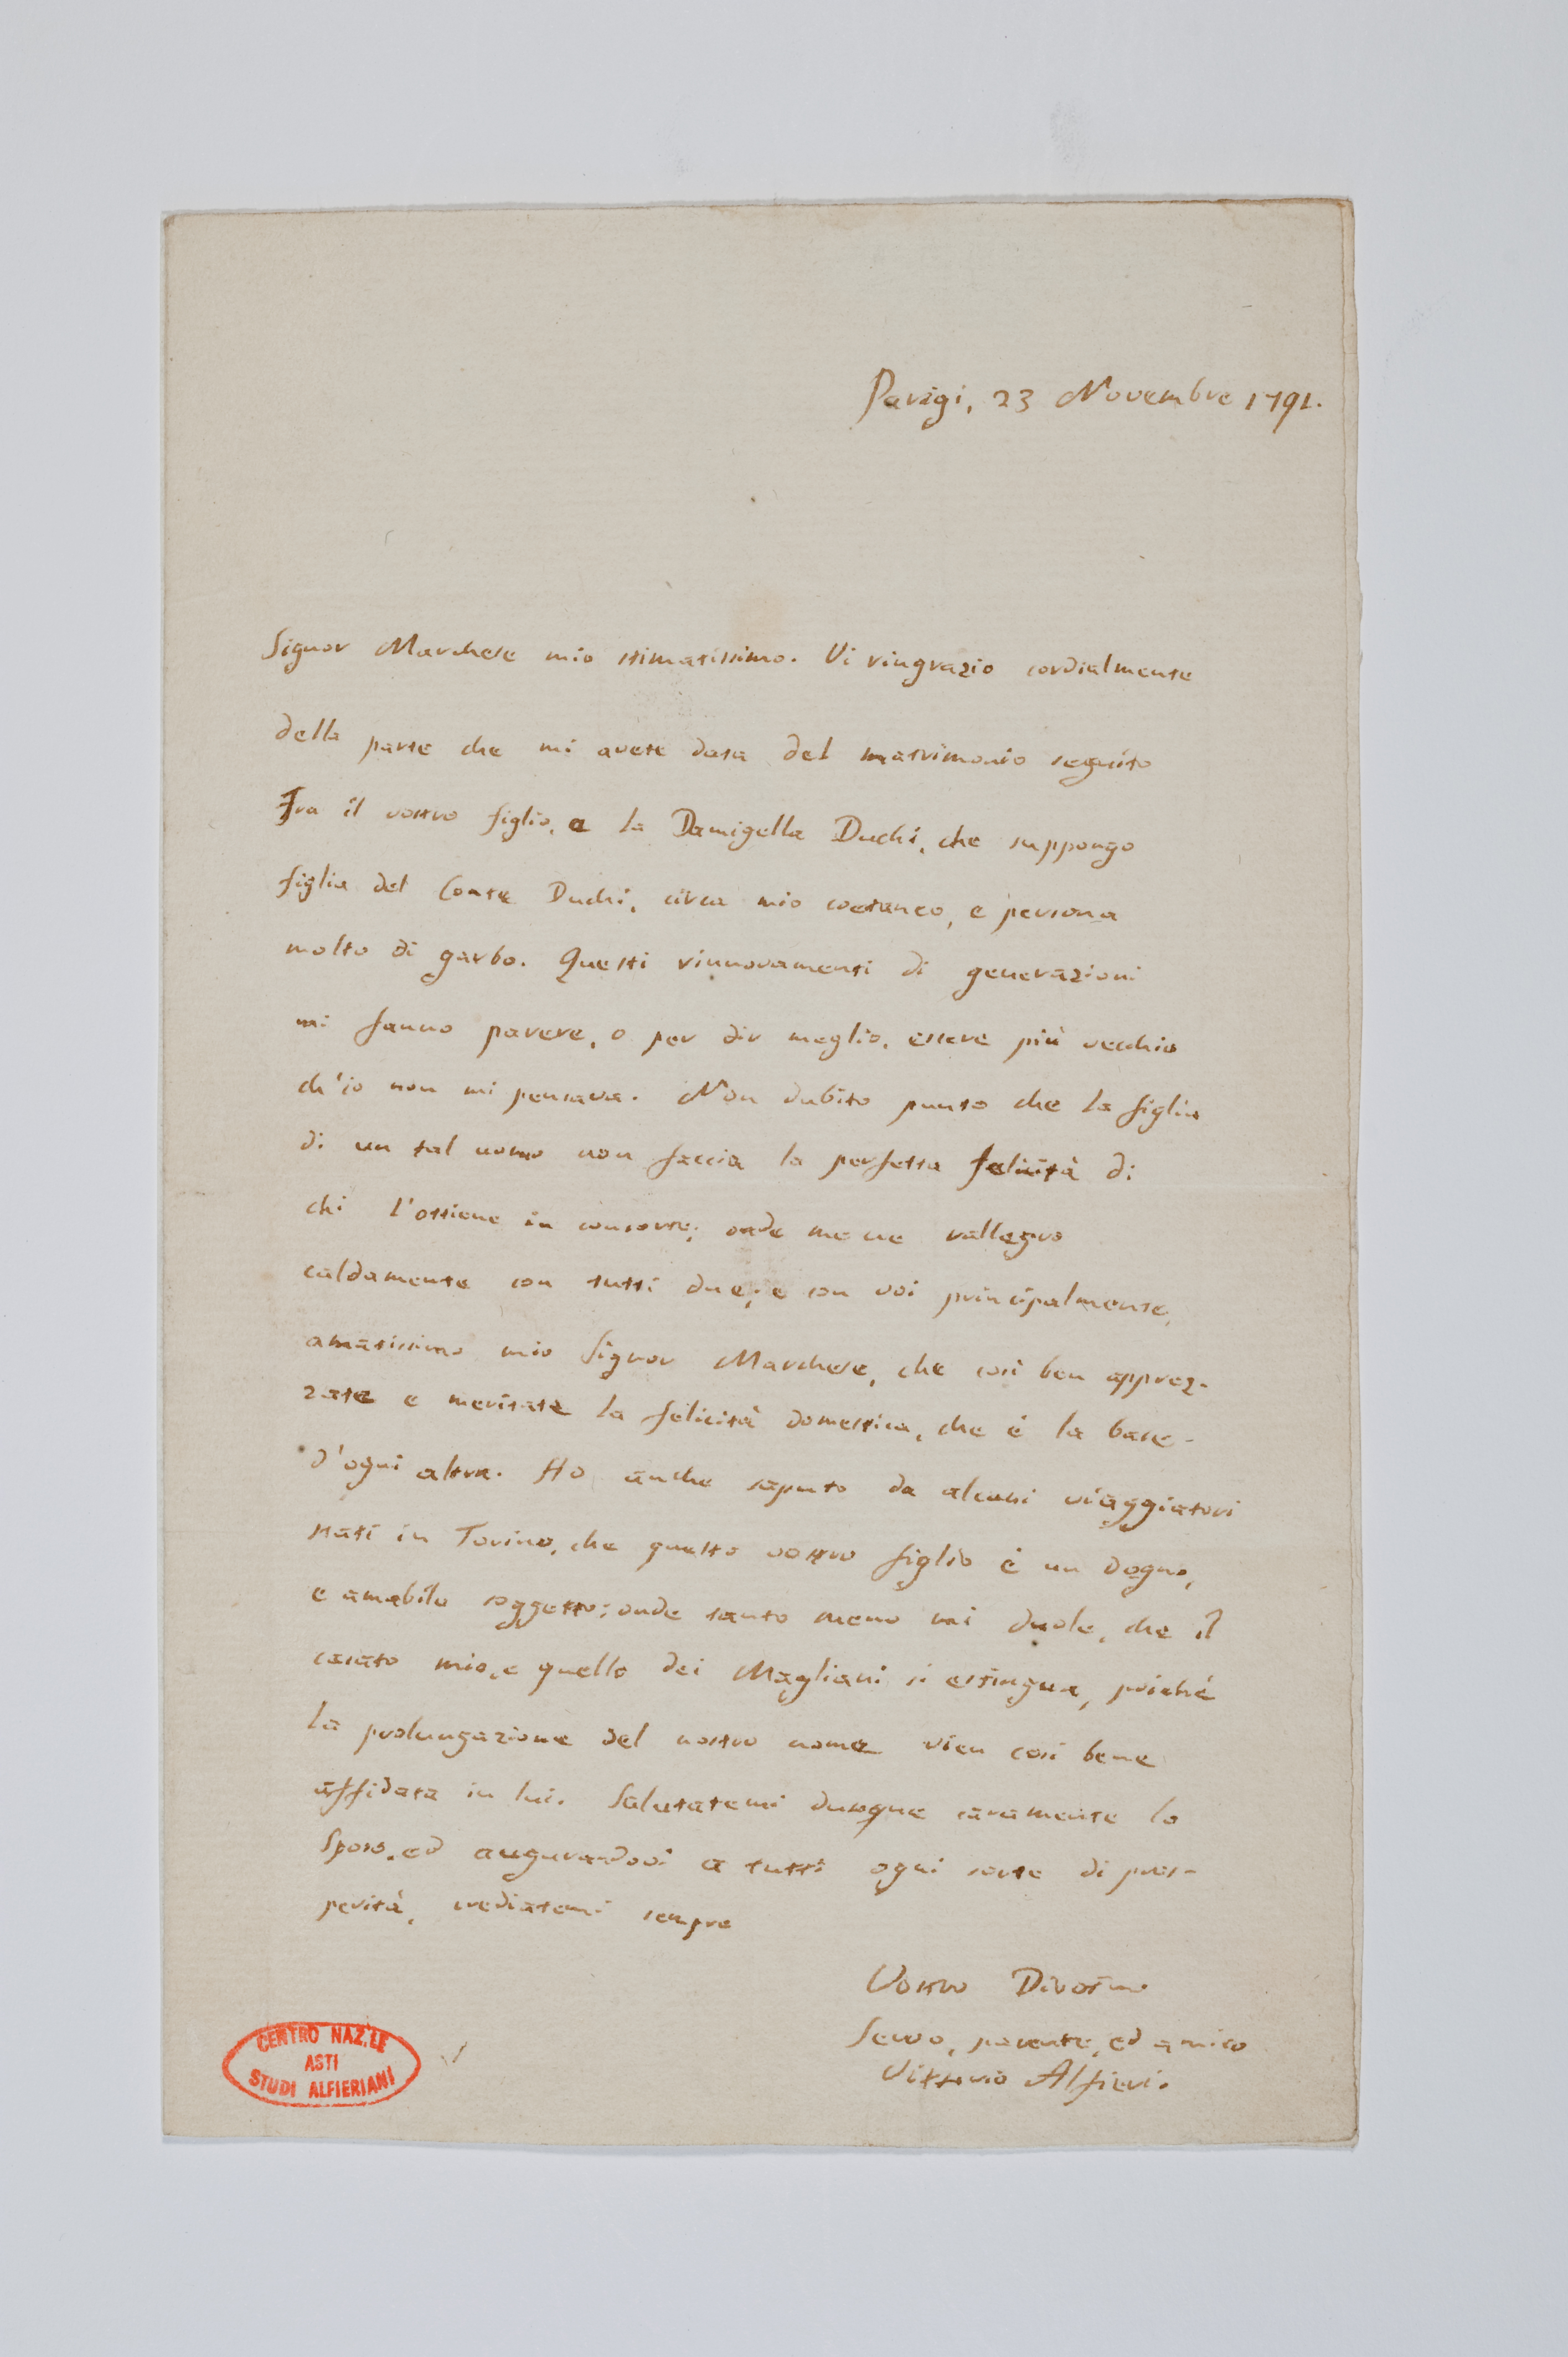 Parigi, 23 Novembre 1791.
Signor Marchese mio stimatissimo. Vi ringrazio cordialmente
della parte che mi avete data del matrimonio seguito
Fra il vostro figlio, e la Damigella Duchi, che suppongo
figlia del Conte Duchi, circa mio coetaneo, e persona
molto di garbo. Questi rinnovamenti di generazioni
mi fanno parere, o per dir meglio, essere più vecchio
ch'io non mi pensava. Non dubito punto che la figlia
di un tal uomo non faccia la perfetta felicità di
chi l'ottiene in consorte; onde me ne rallegro
caldamente con tutti due; e con voi principalmente,
amatissimo mio Signor Marchese, che così ben apprez-
zate e meritate la felicità domestica, che è la base
d'ogni altra. Ho anche saputo da alcuni viaggiatori
stati in Torino, che questo vostro figlio è un degno,
e amabile soggetto; onde tanto meno mi duole, che il
casato mio, e quello dei Magliani si estingua, poichè
la prolungazione del nostro nome vien così bene
affidata in lui. Salutatemi dunque caramente lo
Sposo, ed augurandovi a tutti ogni sorte di pros-
perità, crediatemi sempre
Vostro Divotmo.
Servo, parente, ed amico
Vittorio Alfieri.
CENTRO NAZ.LE
ASTI
STUDI ALFIERIANI